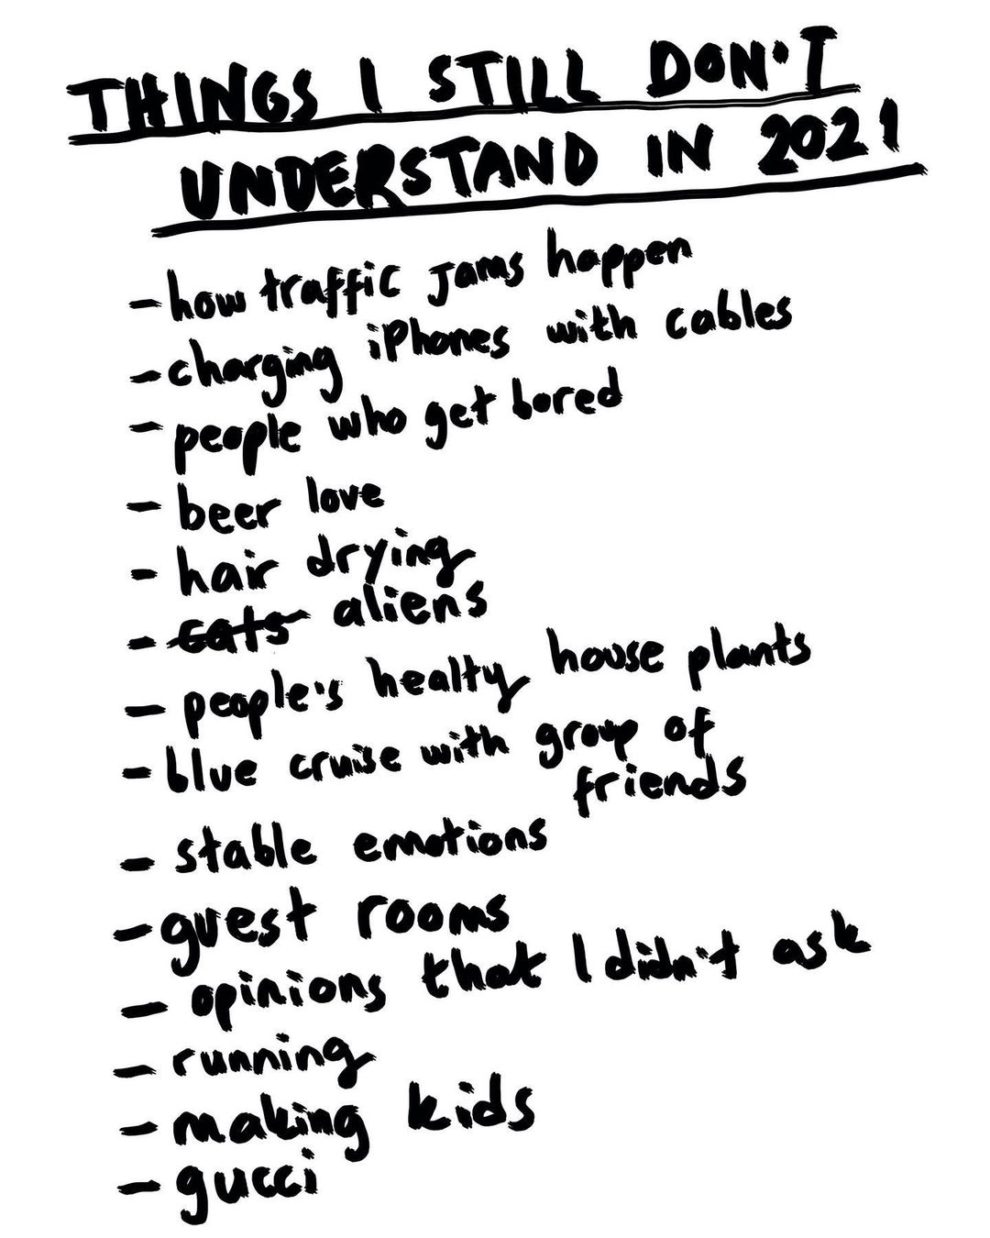 THINGS I STILL DON'T
UNDERSTAND IN 2021
- how traffic jams happen
- charging iPhones with cables
- people who get bored
- beer love
- hair drying
- cats aliens
- people's healty house plants
- blue cruise with group of
friends
- stable emotions
- guest rooms
- opinions that I didn't ask
- running
- making kids
- gucci